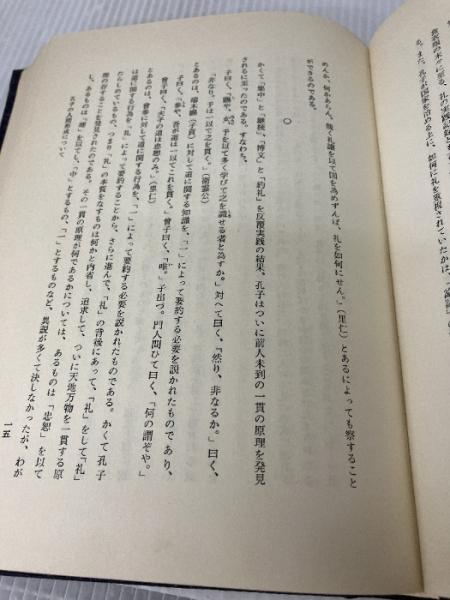 めんか、何かあらん。能く礼譲を以て国を為めずんば、礼を如何にせん。」(里仁)とあるによっても察すること
ができるのである。
〇
かくて「集中」と「継続」、「博文」と「約礼」を反覆実践の結果、孔子はついに前人未到の一貫の原理を発見
されるに至ったのである。すなわち、
子曰く、「賜や、女、予を以て多く学びて之を識る者と為すか。」対へて曰く、「然り、非なるか。」曰く、
「非なり。予は一以て之を貫く。」(衛霊公)
とあるのは、端木賜(子貢)に対して道に関する知識を、「一」によって要約する必要を説かれたものであり、
子曰く、「参や、吾が道は一以てこれを貫く。」曾子曰く、「唯。」子出づ。門人問ひて曰く、「何の謂ぞや。」
曾子曰く、「夫子の道は忠恕のみ。」(里仁)
とあるのは、曾参に対して道に関する行為を、「一」によって要約する必要を説かれたものである。かくて孔子
は道に関する行為を「礼」によって要約することから、さらに進んで、「礼」の背後にあって、「礼」をして「礼」
たらしめているもの、つまり「礼」の本質をなすものは何かと内省し、追求して、ついに天地万物を一貫する原
理の存することを発見されたのである。その一貫の原理が何であるかについては、あるものは「忠恕」を以て
し、あるものは「誠」を以てし、「中」とするもの、「一」とするものなど、異説が多くて決しなかったが、わが
孔子の人間形成について
一五